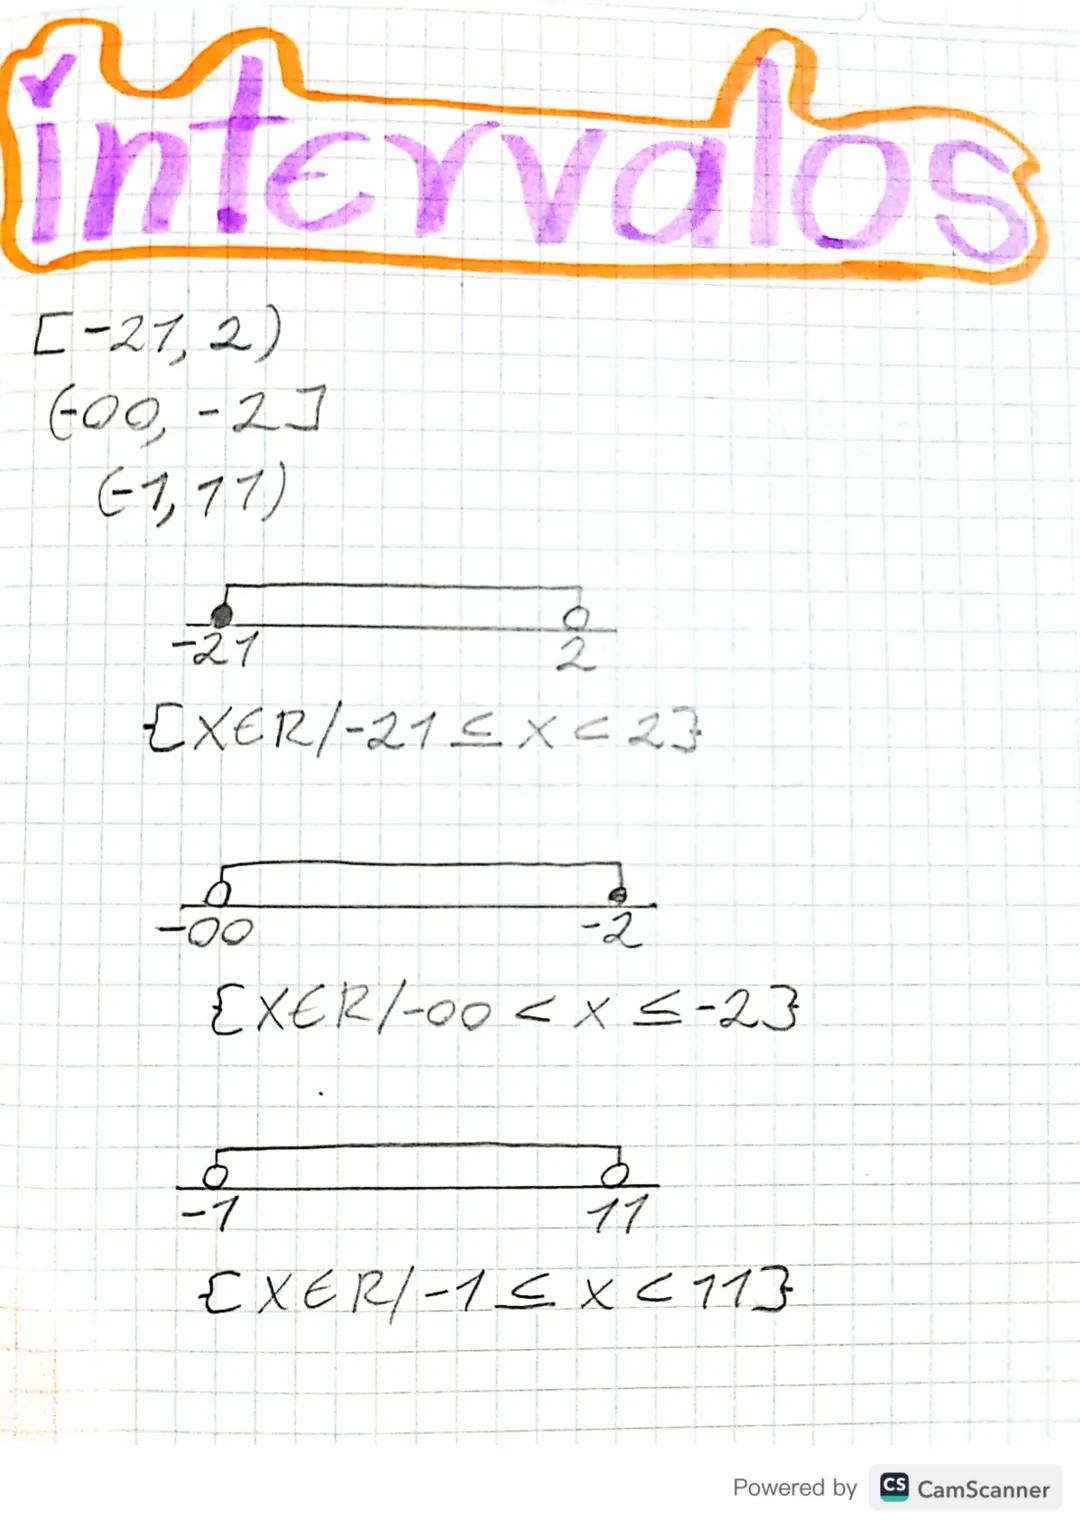 intervalos
[-21, 2)
(-∞, -2]
(-1, 11)
-21 2
{X∈R/-21 ≤ x < 2}
-∞ -2
{X∈R/-∞ < x ≤ -2}
-1 11
{X∈R/-1 ≤ x < 11}
Powered by CS CamScanner